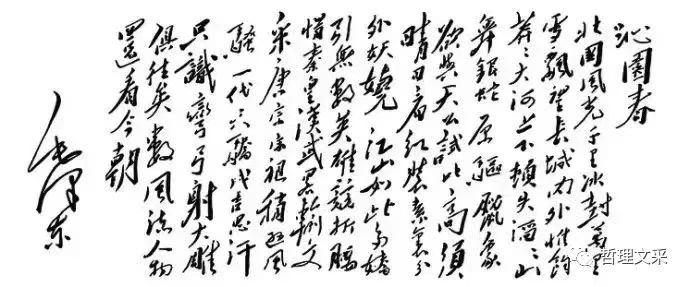 沁園春
北國風光千里冰封萬里
雪飄望長城內外惟餘
莽々大河上下頓失滔々山
舞銀蛇原驅臘象
欲與天公試比高須
晴日看紅裝素裹分
外妖嬈江山如此多嬌
引無數英雄競折腰
惜秦皇漢武略輸文
采唐宗宋祖稍遜風
騷一代天驕成吉思汗
只識彎弓射大雕
俱往矣數風流人物
還看今朝
毛澤東
哲理文采